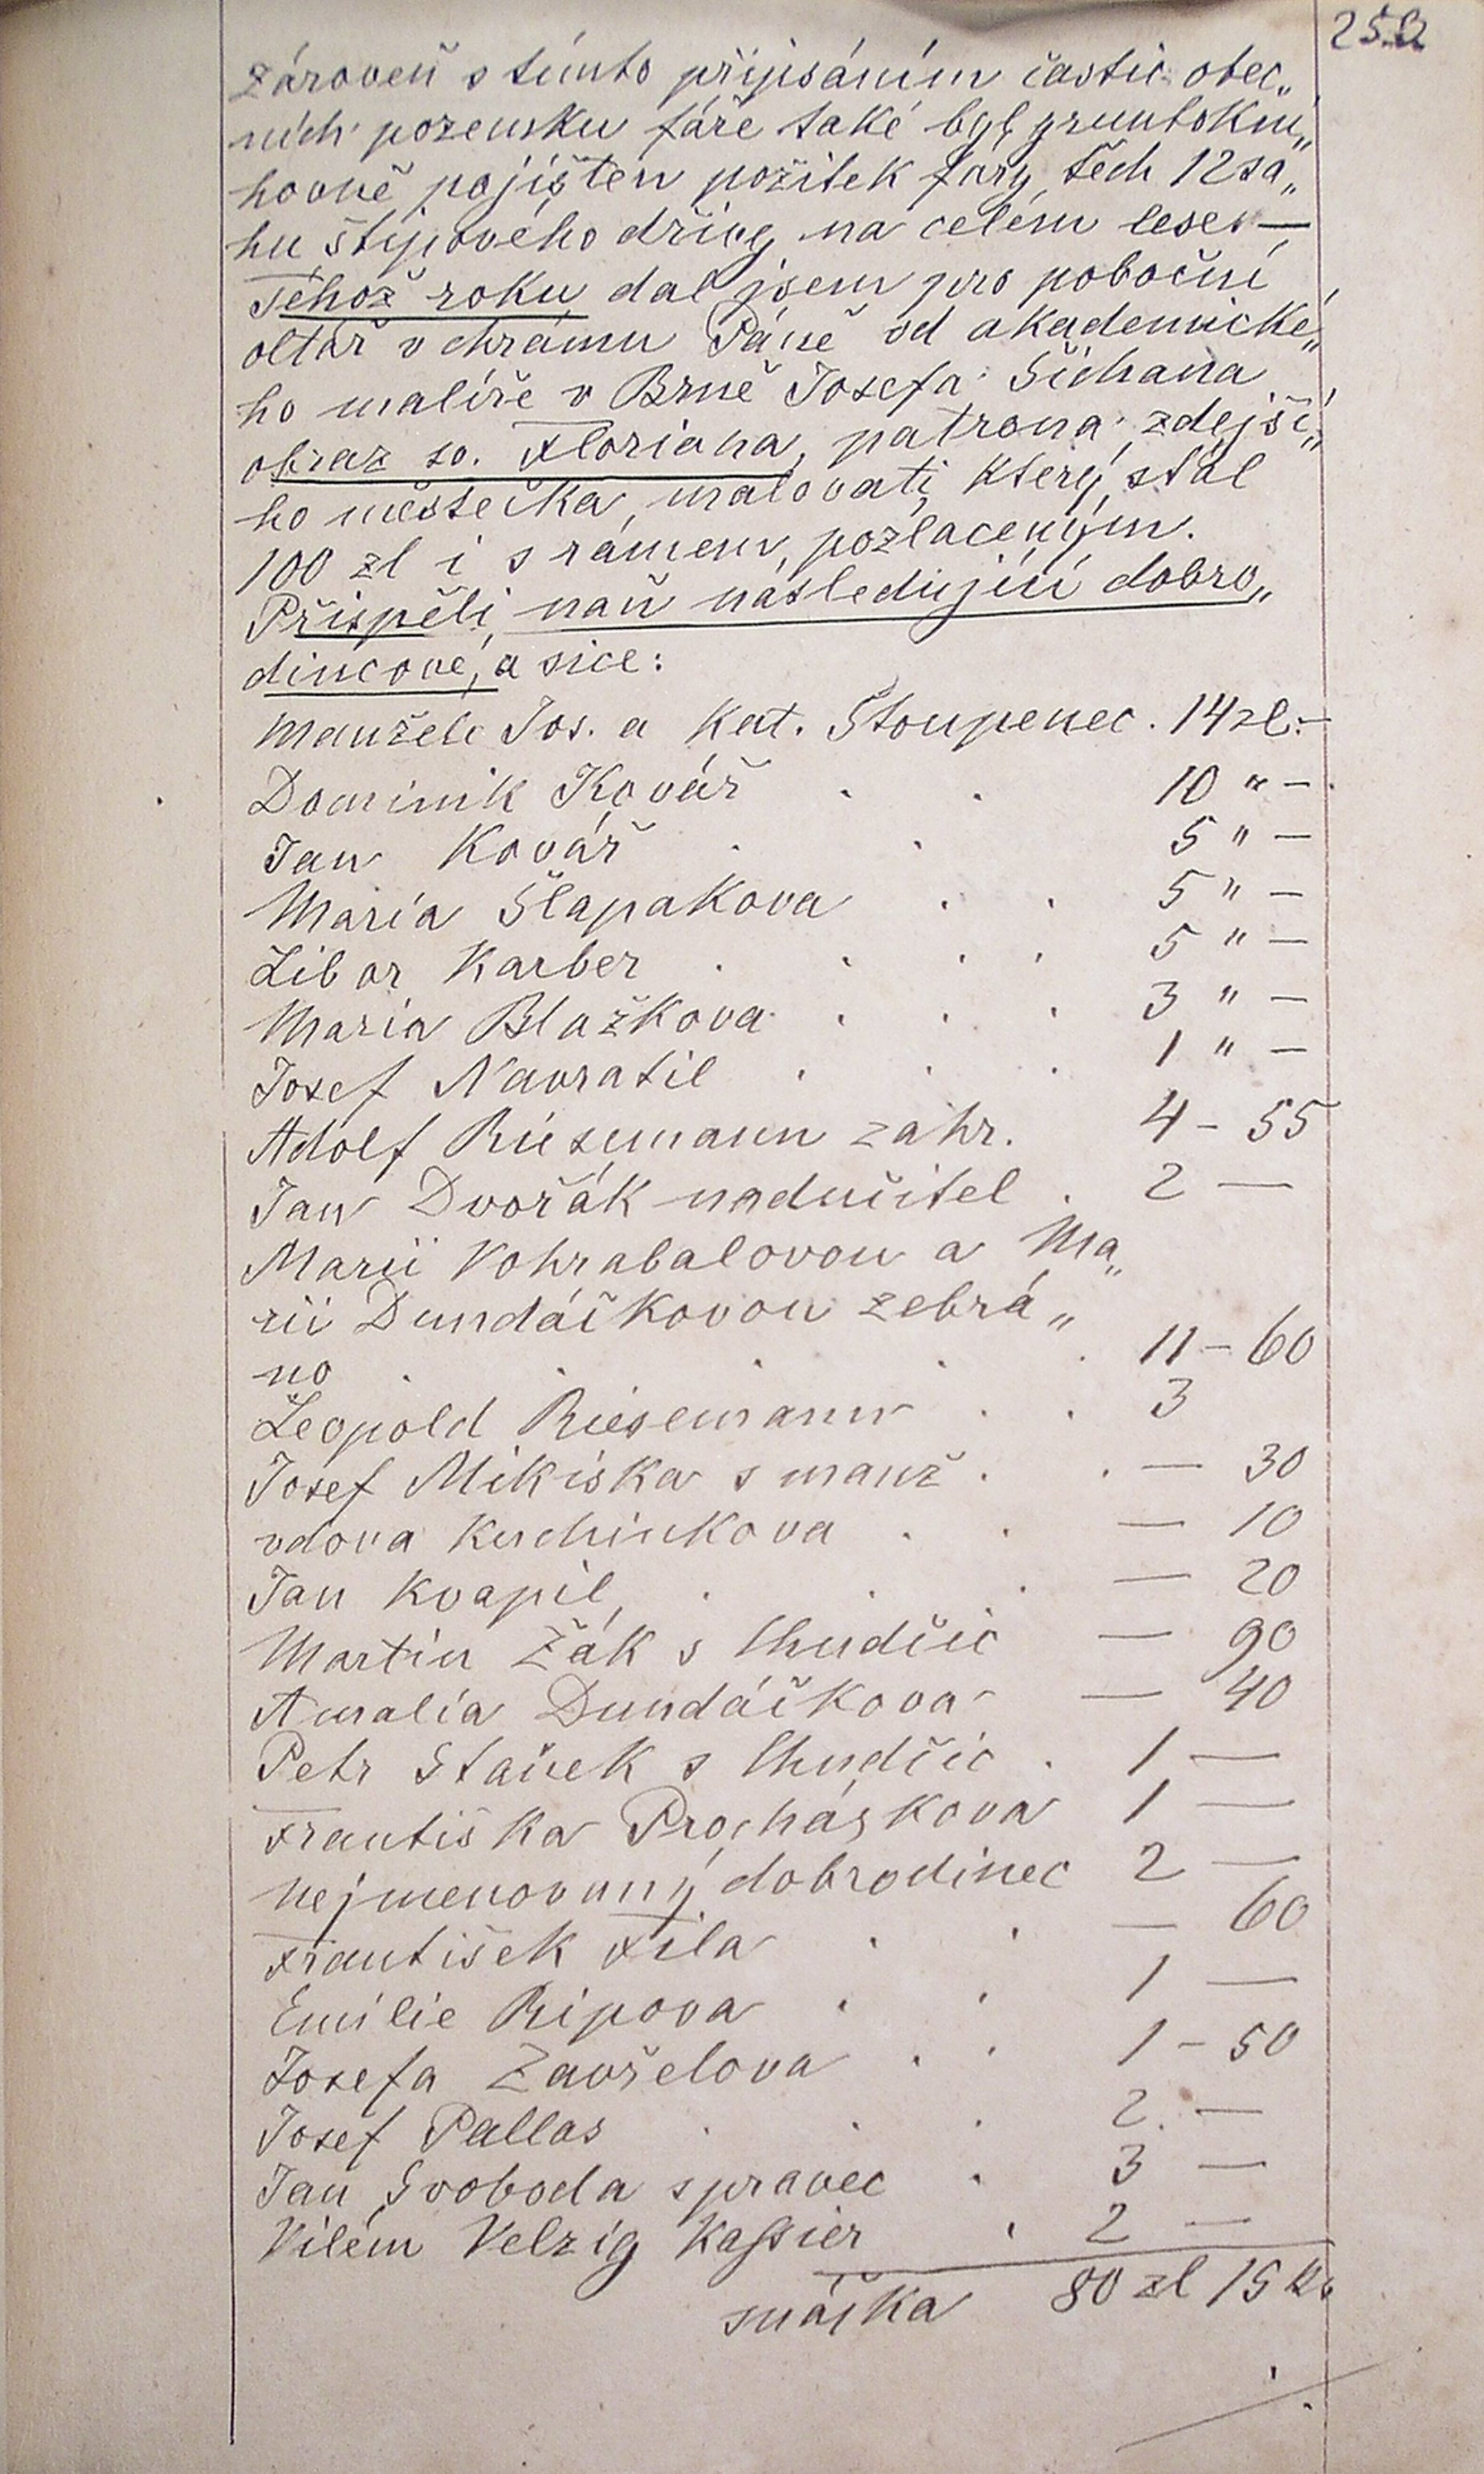 252
zároveň s tímto připsáním častic obec„
ních pozemku fáře také byl gruntokni„
hovně pojištěn požitek fary těch 12 sa„
hu štipového dřivý na celém lese. —
Téhož roku dal jsem pro poboční
oltář v chrámu Páně od akademické„
ho malíře v Brně Josefa Šichana
obraz sv. Floriana, patrona zdejší„
ho městečka, malovati, který stál
100 zl i s rámem pozlaceným.
Přispěli naň následující dobro„
dincové, a sice:
Manželé Jos. a Kat. Stoupenec . 14 zl. —
Dominik Kovář . . 10 " — .
Jan Kovář . . 5 " —
Maria Šlapakova . . 5 " —
Libor Karber . . . . 5 " —
Maria Blažkova . . . 3 " —
Josef Navratil . . . 1 " —
Adolf Riesemann zahr. 4 – 55
Jan Dvořák nadučitel . 2 —
Marii Vohrabalovou a Ma„
rii Dundáčkovou zebrá„
no . . . . . 11 – 60
Leopold Riesemann . . 3
Josef Mikiska s manž . . — 30
vdova Kuchinkova . . — 10
Jan Kvapil . . . — 20
Martin Žák s Chudčic — 90
Amalia Dundáčkova — 40
Petr Staněk s Chudčic . 1 —
Františka Procháskova 1 —
nejmenovaný dobrodinec 2 —
František Fila . . — 60
Emilie Ripova . . 1 —
Josefa Zavřelova . . 1 – 50
Josef Pallas . . . 2. —
Jan Svoboda spravec . 3 —
Vilém Velzig Kassier . 2 —
snáška 80 zl 15 kr